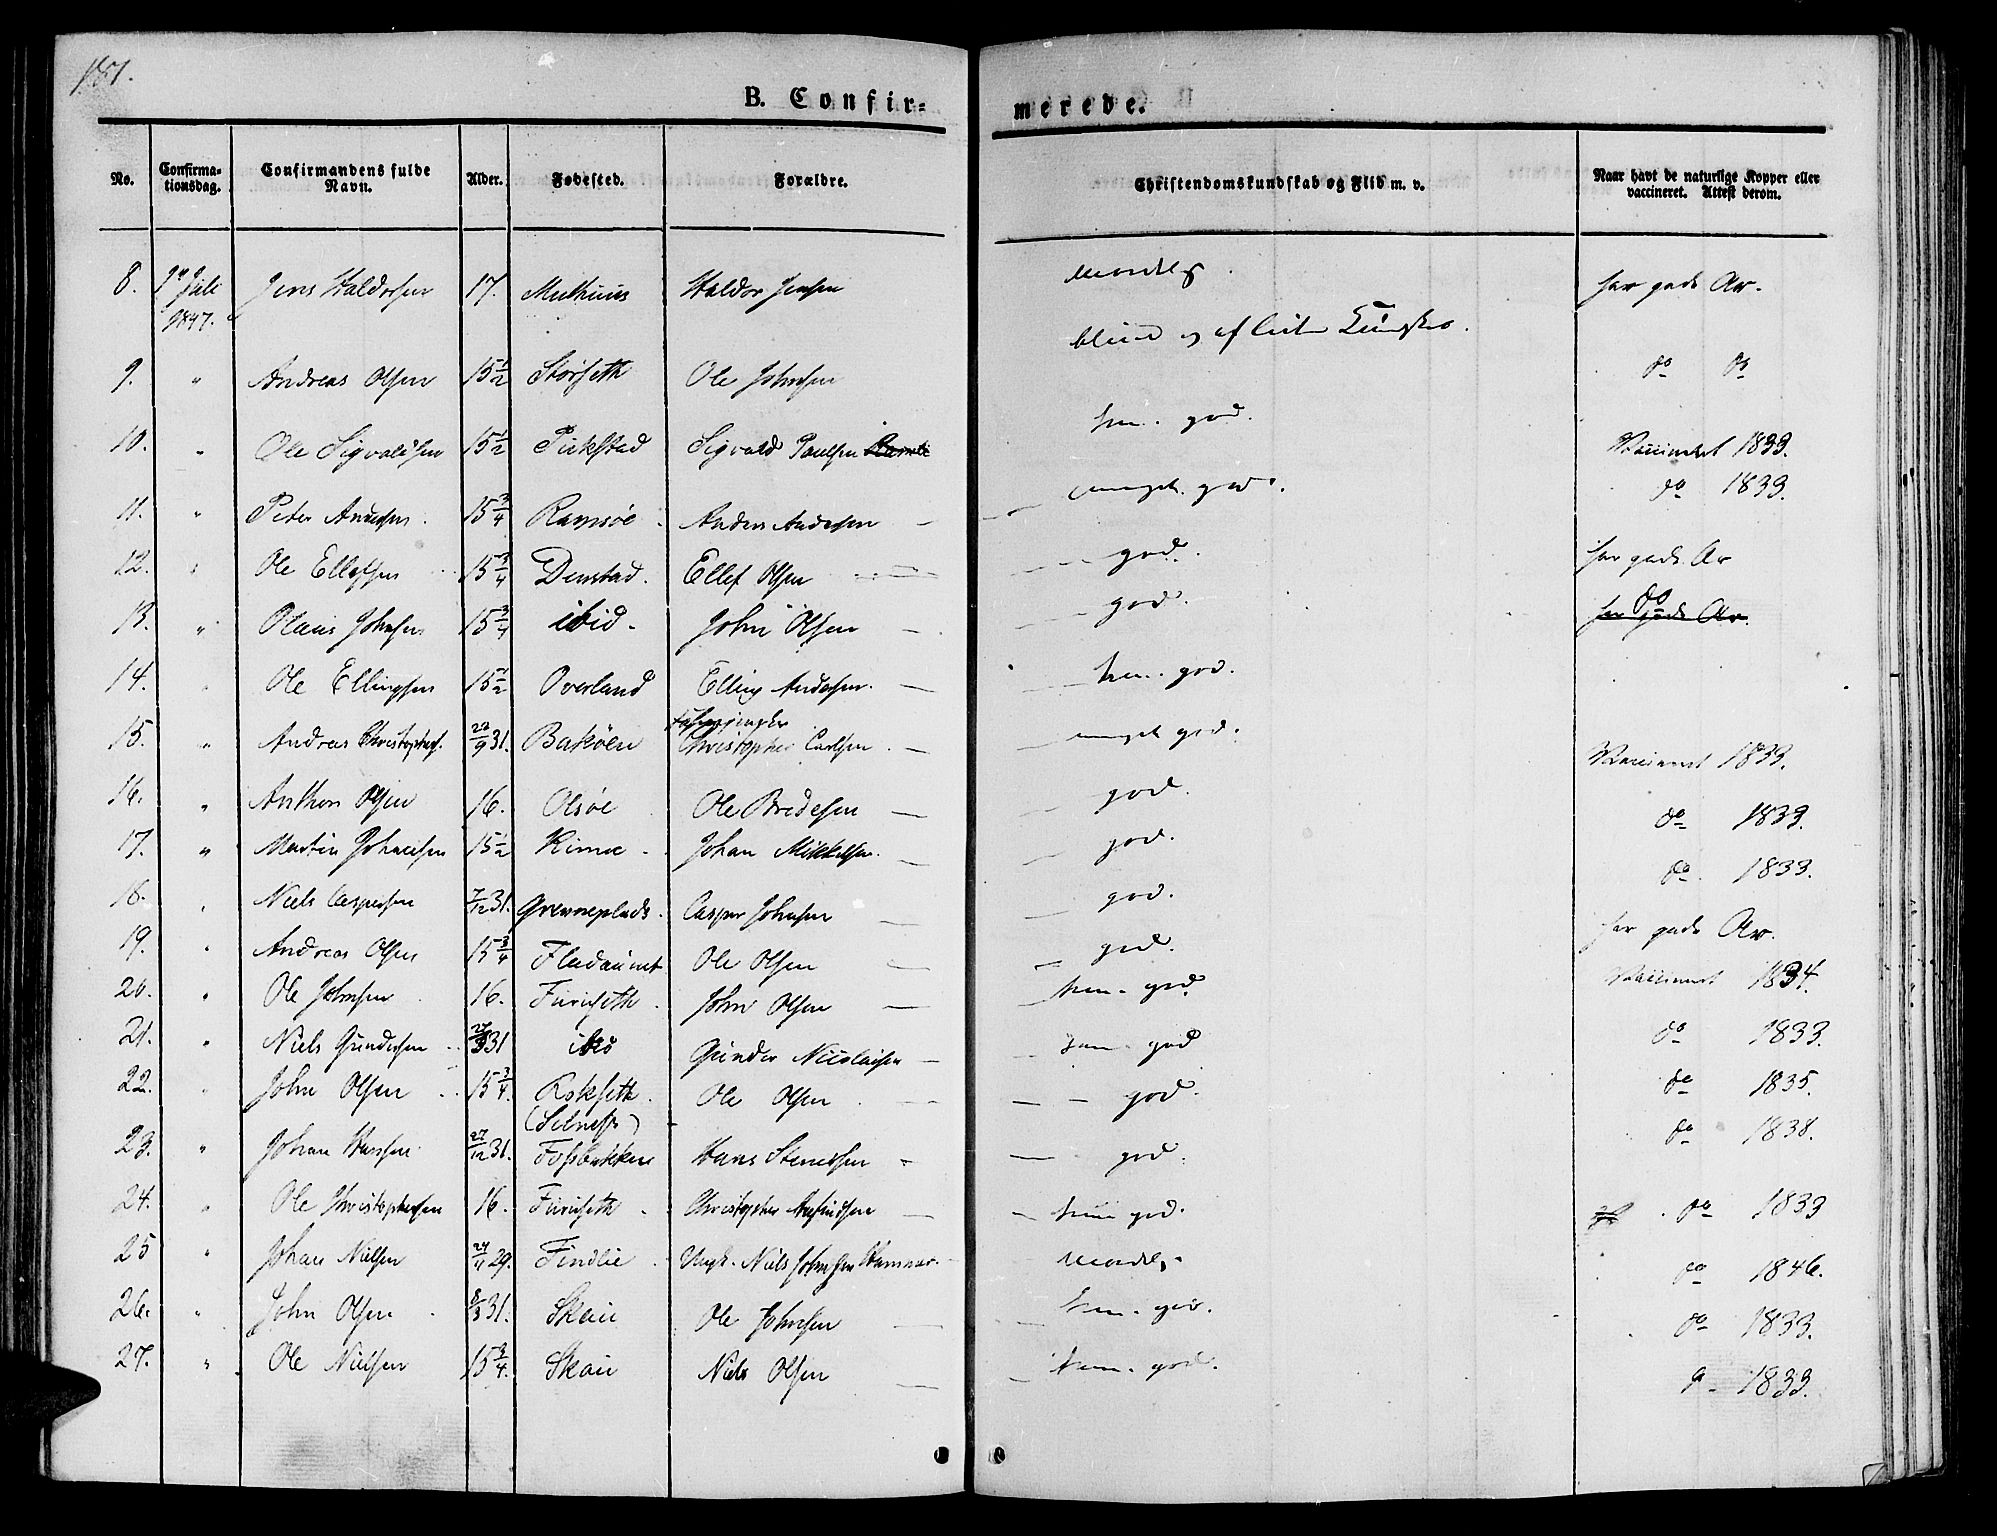 181.
B. Confir-
merede.
No. Confirma-tionsdag. Confirmandens fulde Navn. Alder. Fødested. Forældre. Christendomskundskab og Flid m. v. Naar havt de naturlige Kopper eller vaccineret. Attest derom.
8. Juli 1847. Jens Haldorsen 17. Haldor Jensen maadelig. har gode Ar.
9. " Andreas Olsen 15 1/2 Storseth Ole Johnsen blind og af liden do do
10. " Ole Sigvaldsen 15 1/2 Sigvald Paulsen tem. god. Vaccineret 1833.
11. " Peter Andersen. 15 3/4 Ramsøe Anders Andersen meget god. do 1833.
12. " Ole Ellefsen 15 3/4 Denstad. Ellef Olsen god. har gode Ar
13. " Olaus Johnsen 15 3/4 ibid. John Olsen god. do har gode Ar.
14. " Ole Ellingsen 15 1/2 Overland Elling Andersen. tem. god.
15. " Andreas Christophers. 22/9 31. Bakøen Christopher Carlsen meget god. Vaccineret 1833.
16. " Anthon Olsen 16. Olsøe Ole Bredesen god. do 1833.
17. " Martin Johansen 15 1/2 Kimoe Johan Mikkelsen. god. do 1833.
18. " Niels Caspersen 7/12 31. Casper Johnsen god. har gode Ar.
19. " Andreas Olsen 15 3/4 Ole Olsen god. Vaccineret 1834.
20. " Ole Johnsen 16. Furuseth. John Olsen tem. god do 1833.
21. " Niels Gundersen 31 ibid Gunder Nicolaisen tem. god do 1835.
22. " John Olsen 15 3/4. Rokseth. Ole Olsen god. do 1838.
(Selness)
23. " Johan Hansen 27/12 31. Fossbakken Hans Steensen god.
24. " Ole Christophersen 16. Furuseth Christopher tem. god. do 1833
25 " Johan Nielsen 24/11 29. Findlie Ungk. Niels Johnsen Hammer. maadel. do 1846.
26. " John Olsen 8/3 31. Skau Ole Johnsen tem. god. do 1833.
27. " Ole Nielsen 15 3/4. Skau Niels Olsen tem. god. 1833.